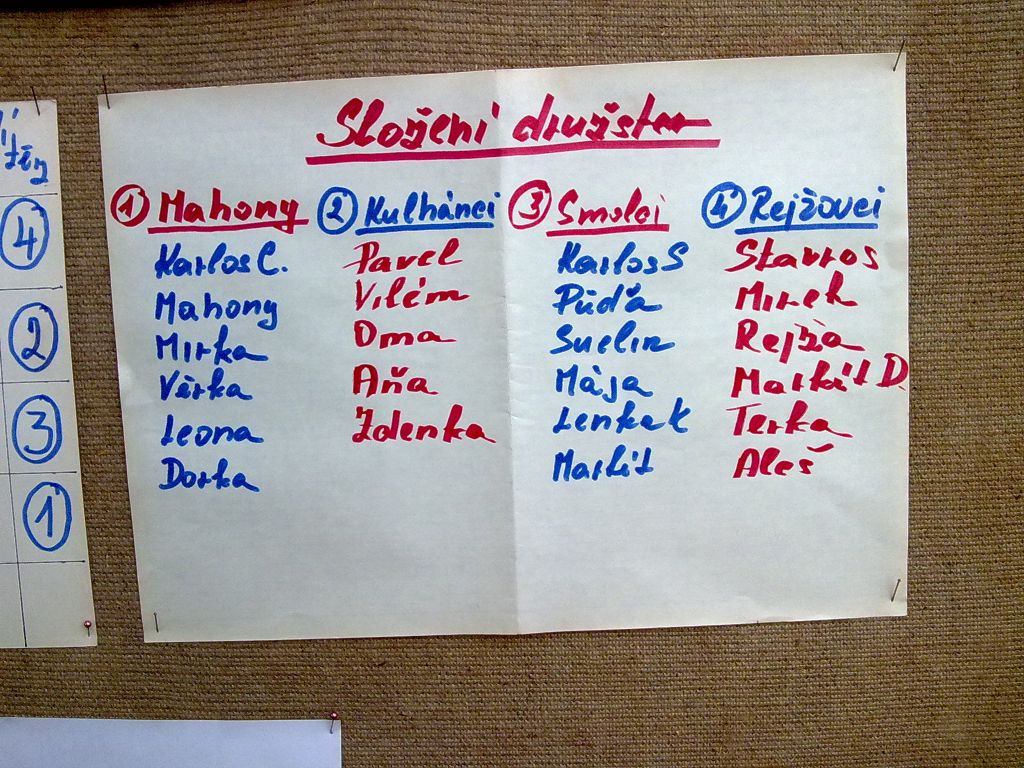 Složení družstev
① Mahony
Karlos C.
Mahony
Mirka
Věrka
Leona
Dorka
② Kulhánci
Pavel
Vilém
Oma
Aňa
Zdenka
③ Smolei
Karlos S
Púďa
Suelin
Mája
Lenka K
Markit
④ Rejžovci
Stavros
Mirek
Rejža
Markit D.
Terka
Aleš
④
②
③
①